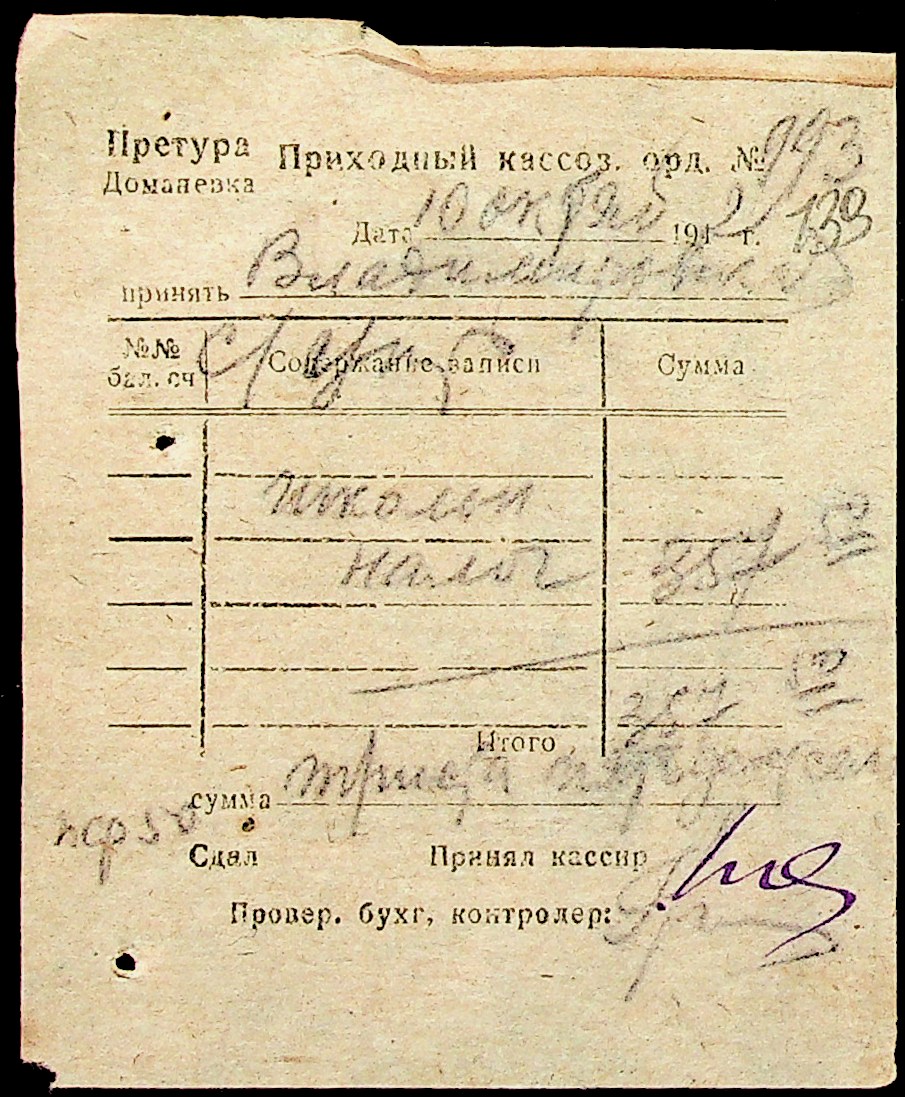 Претура Приходный кассов. орд. № 993
Доманевка
Дата 10 октяб 1942 г. 133
принять Владимировка
№№ бал. сч Содержание записи Сумма
школьн
налог 357
357
Итого
сумма триста
Сдал Принял кассир
Провер. бухг, контролер: